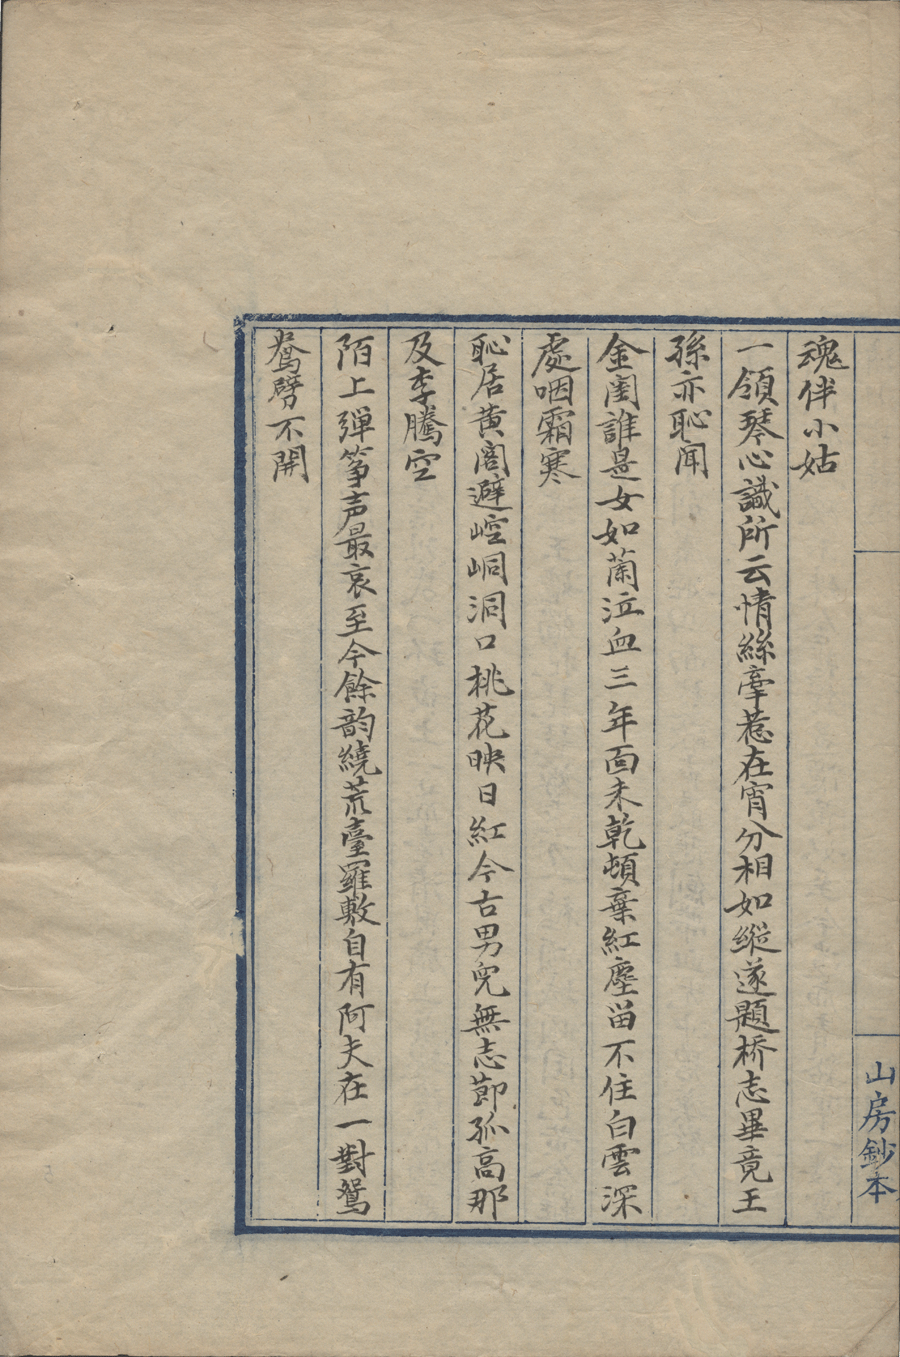 魂伴小姑
一領琴心識所云情絲牽惹在宵分相如縱遂題桥志畢竟王
孫亦恥聞
金閨誰是女如蘭泣血三年面未乾頓棄紅塵留不住白雲深
處咽霜寒
恥居黄閣避崆峒洞口桃花映日紅今古男兒無志節孤高那
及李騰空
陌上弹筝声最哀至今餘韵繞荒臺羅敷自有阿夫在一對鴛
鴦劈不開
山房鈔本